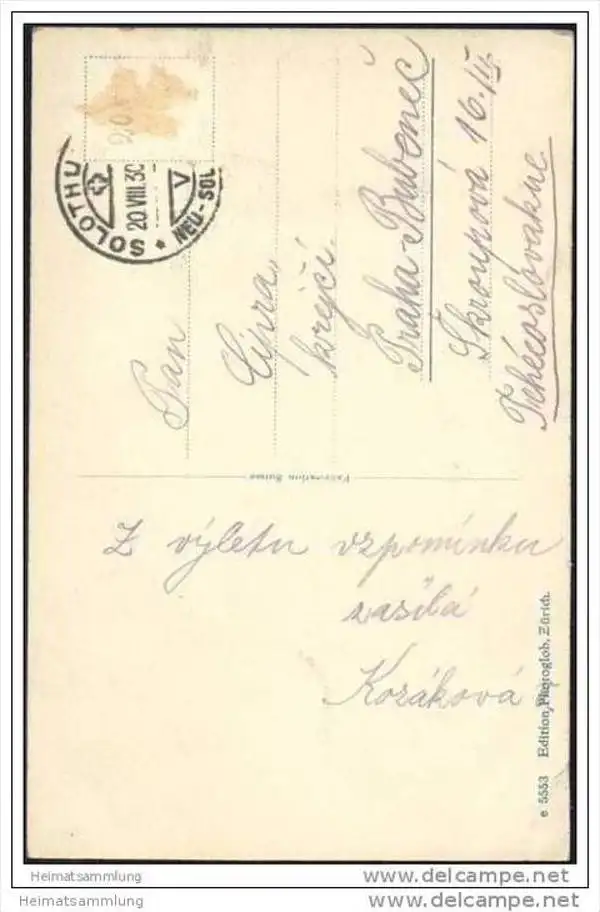 SOLOTHU
20.VIII.30
V
NEU-SOL
Pan
Cipra,
krejčí
Praha-Bubeneč
Škroupová 16./II
Tchécoslovakue
Fabrication Suisse
Z výletu vzpomínku
zasílá
Kozáková
e 5553 Edition Photoglob, Zürich.
Heimatsammlung
delcampe.net
Heimatsammlung
delcampe.net